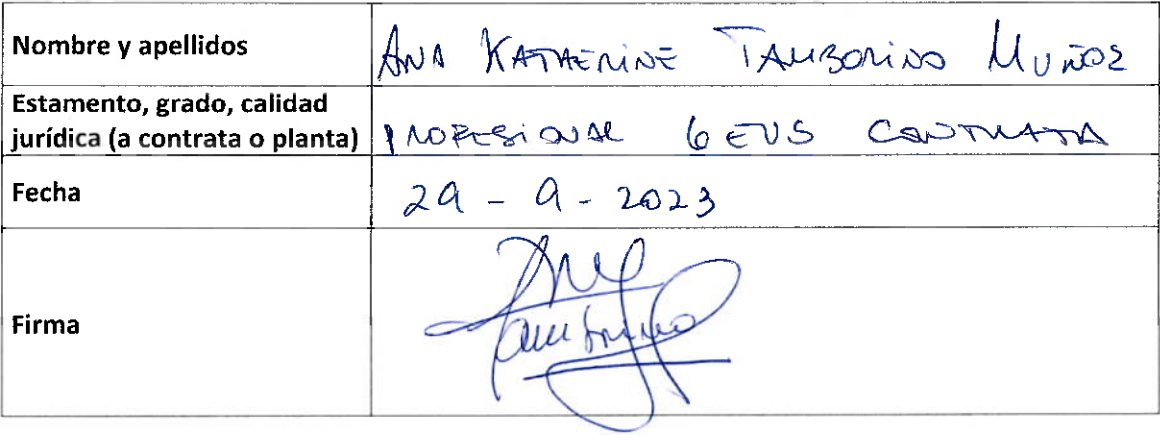 Nombre y apellidos
ANA KATHERINE TAMBORINO MUÑOZ
Estamento, grado, calidad
jurídica (a contrata o planta)
PROFESIONAL 6 EUS CONTRATA
Fecha
29 - 9 - 2023
Firma
Ana
Tamborino